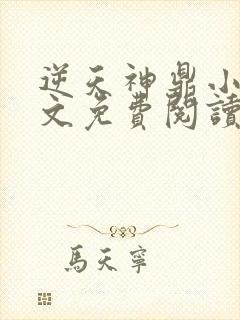 逆天神鼎小
文免費閱讀
馬天寧